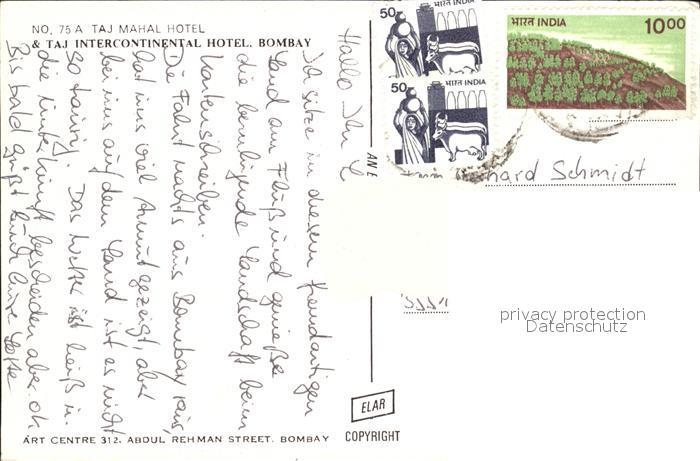 NO. 75 A TAJ MAHAL HOTEL
& TAJ INTERCONTINENTAL HOTEL. BOMBAY
Hallo Ihr L
Ich sitze in diesem fremdartigen
Land am Fluß und genieße
die beruhigende Landschaft beim
Kartenschreiben.
Die Fahrt nachts aus Bombay raus,
hat uns viel Armut gezeigt, aber
bei uns auf dem Land ist es nicht
so traurig. Das Wetter ist heiß u.
die Unterkunft bescheiden aber ok
Bis bald grüßt Euch Eure
ART CENTRE 312. ABDUL REHMAN STREET. BOMBAY
AN E
ELAR
COPYRIGHT
50 भारत INDIA
50 भारत INDIA
भारत INDIA 10.00
hard Schmidt
privacy protection
Datenschutz